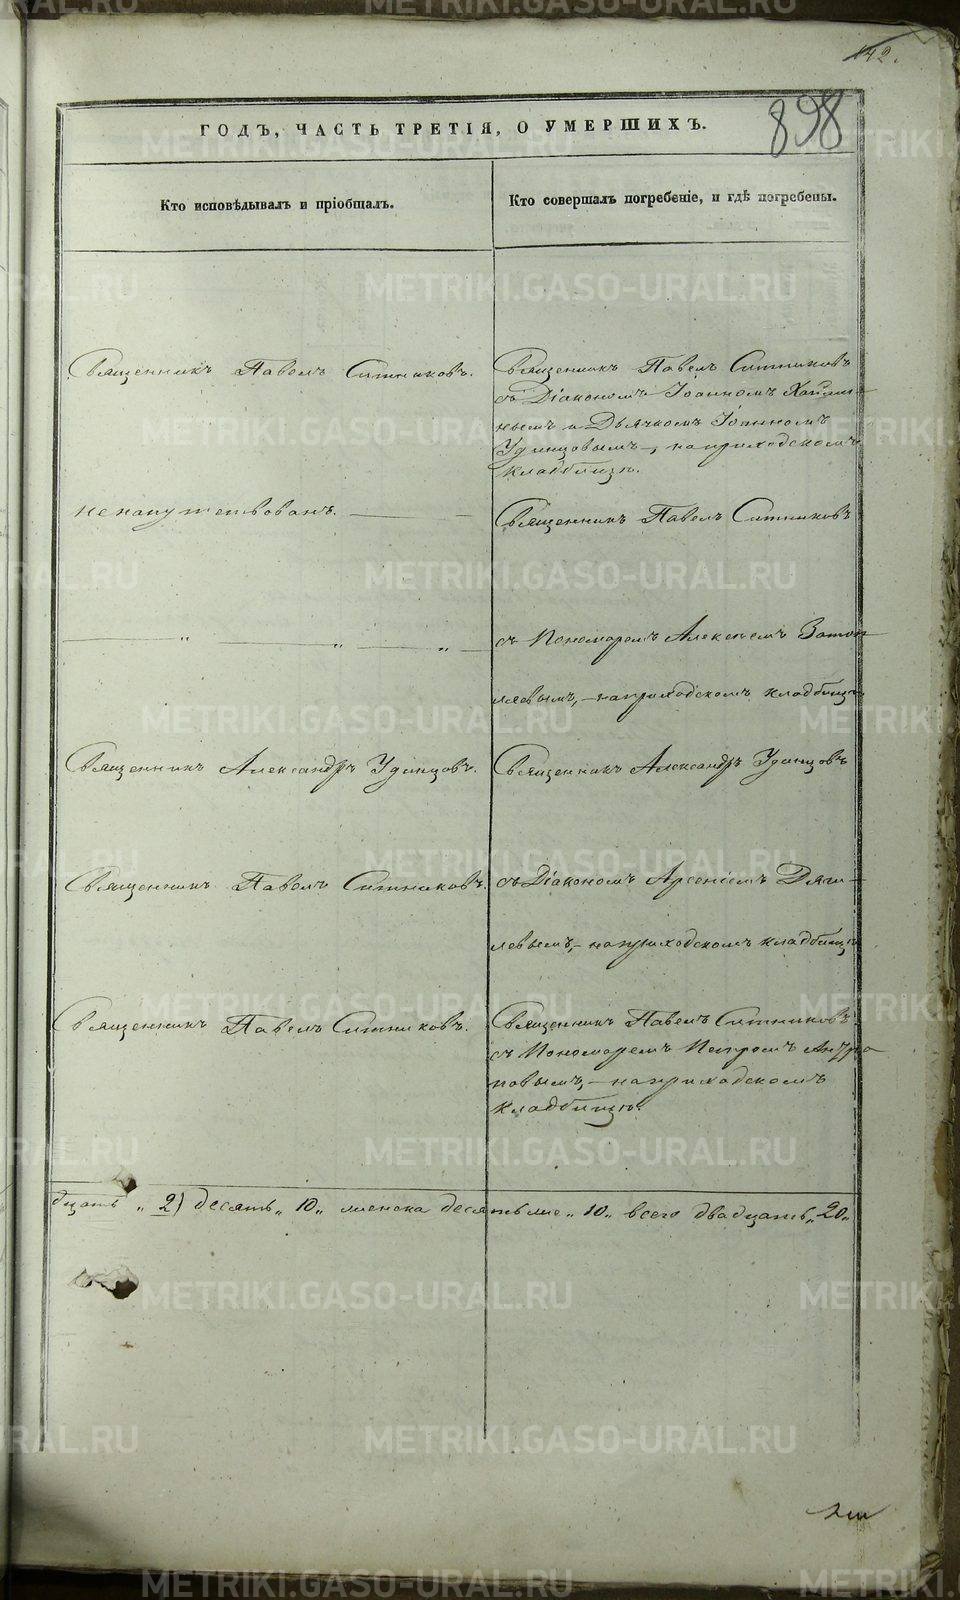 142.
898
ГОДЪ, ЧАСТЬ ТРЕТІЯ, О УМЕРШИХЪ.
Кто исповѣдывалъ и пріобщалъ.
Кто совершалъ погребеніе, и гдѣ погребены.
Священникъ Павелъ Ситниковъ.
Священникъ Павелъ Ситниковъ
съ Діакономъ Іоанномъ
и Дьячкомъ Іоанномъ
Удинцовымъ, на приходскомъ
кладбищѣ.
не напутствованъ.
Священникъ Павелъ Ситниковъ
„ „ „
съ Пономаремъ Алексѣемъ Затоп
ляевымъ, на приходскомъ кладбищѣ
Священникъ Александръ Удинцовъ.
Священникъ Александръ Удинцовъ
Священникъ Павелъ Ситниковъ.
съ Діакономъ Арсеніемъ Дяги-
левымъ, на приходскомъ кладбищѣ
Священникъ Павелъ Ситниковъ.
Священникъ Павелъ Ситниковъ
съ Пономаремъ Петромъ Андро
новымъ, на приходскомъ
кладбищѣ.
дцать „ 2) десять „ 10 „ женска десять „ 10 „ всего двадцать „ 20 „
METRIKI.GASO-URAL.RU